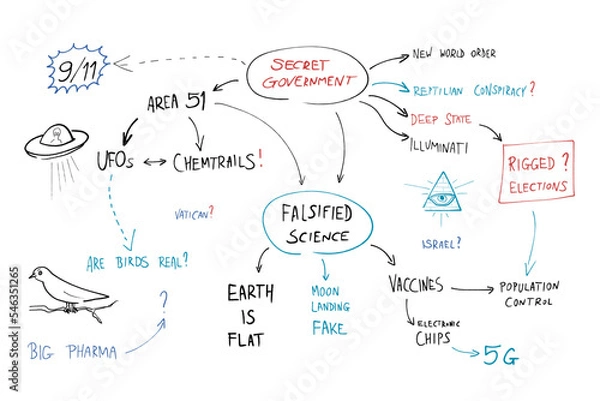 9/11
SECRET
GOVERNMENT
NEW WORLD ORDER
REPTILIAN CONSPIRACY?
DEEP STATE
ILLUMINATI
AREA 51
UFOs
CHEMTRAILS!
RIGGED?
ELECTIONS
VATICAN?
FALSIFIED
SCIENCE
ISRAEL?
ARE BIRDS REAL?
?
BIG PHARMA
EARTH
IS
FLAT
MOON
LANDING
FAKE
VACCINES
POPULATION
CONTROL
ELECTRONIC
CHIPS
5G
Adobe Stock | #546351265
Adobe Stock